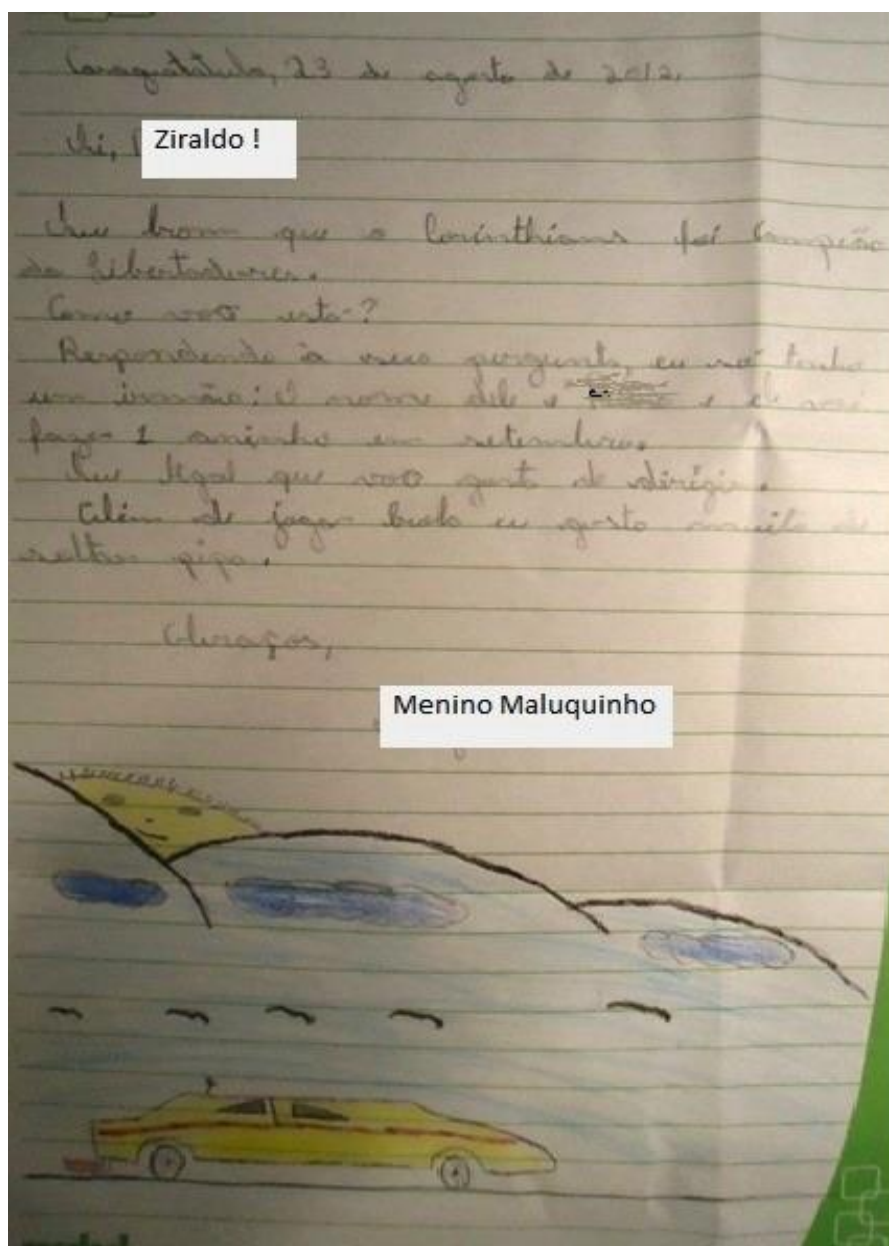 Caraguatatuba, 23 de agosto de 2012.
Oi, Ziraldo !
Que bom que o Corinthians foi campeão
da Libertadores.
Como você está?
Respondendo à sua pergunta, eu só tenho
um irmão: O nome dele é e ele vai
fazer 1 aninho em setembro.
Que legal que você gosta de dirigir.
Além de jogar bola eu gosto muito de
soltar pipa.
Abraços,
Menino Maluquinho